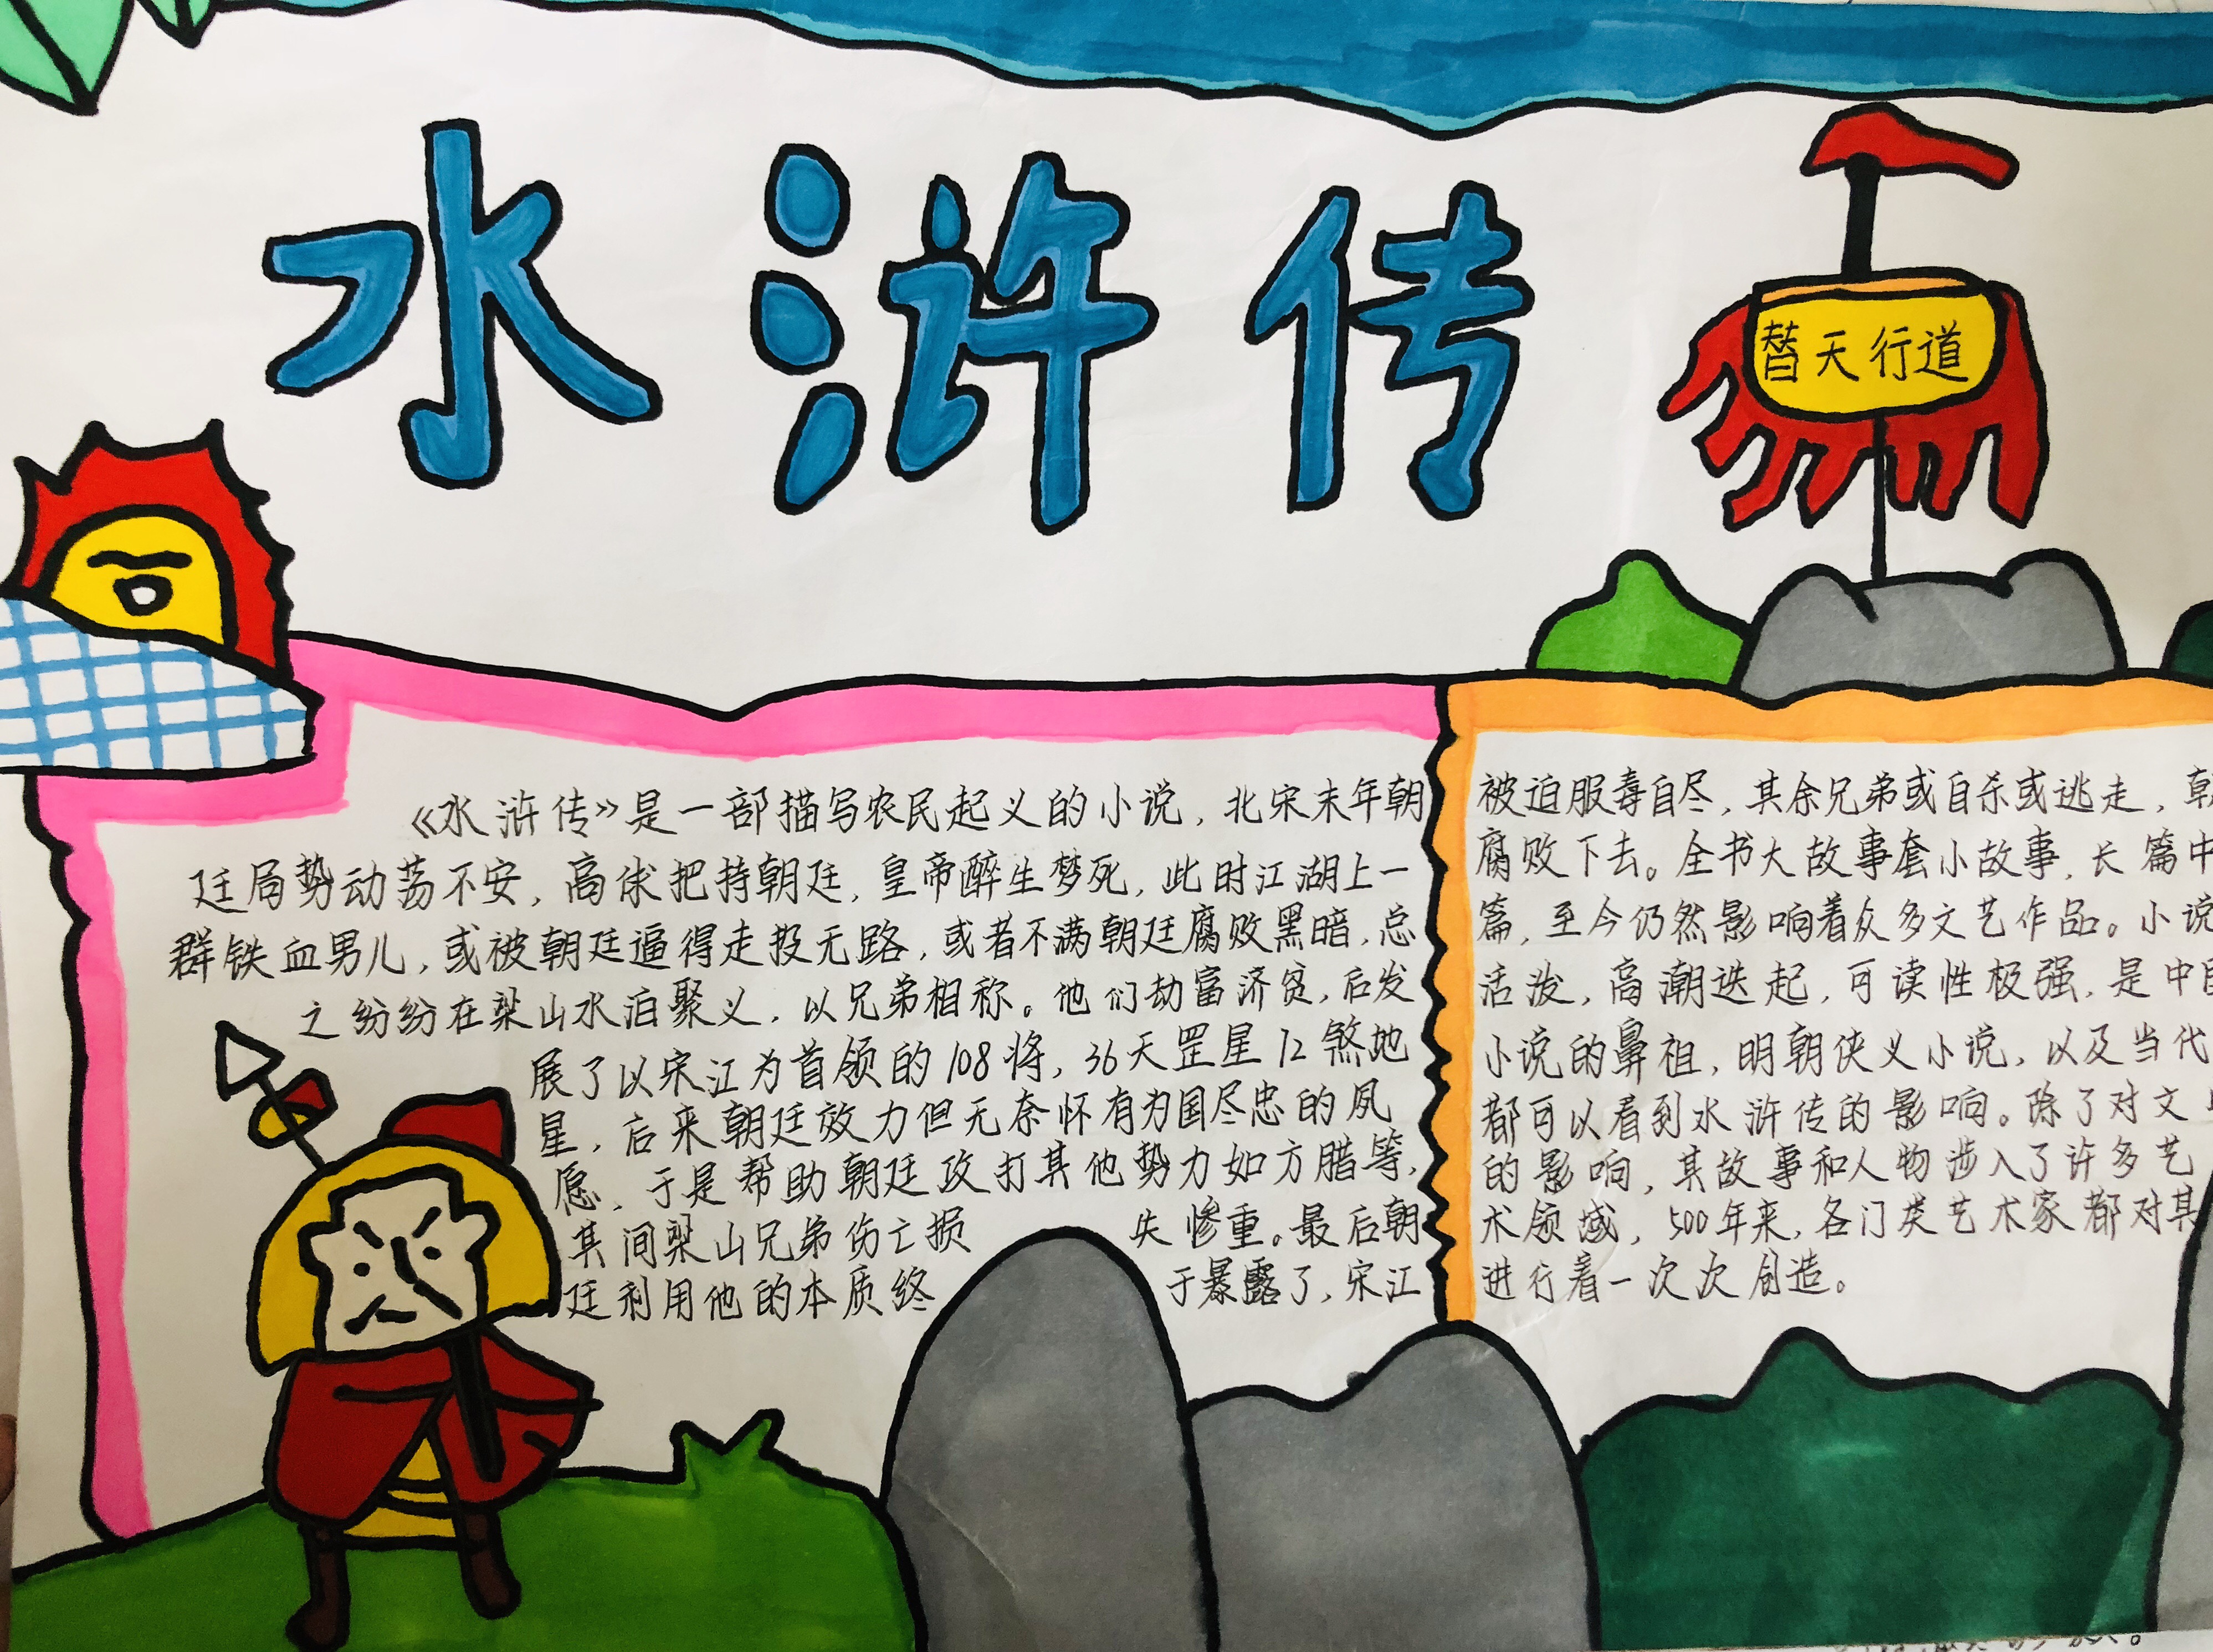 水浒传
替天行道
《水浒传》是一部描写农民起义的小说，北宋末年朝
廷局势动荡不安，高俅把持朝廷，皇帝醉生梦死，此时江湖上一
群铁血男儿，或被朝廷逼得走投无路，或者不满朝廷腐败黑暗，总
之纷纷在梁山水泊聚义，以兄弟相称。他们劫富济贫，后发
展了以宋江为首领的108将，36天罡星12煞地
星，后来朝廷效力但无奈怀有为国尽忠的夙
愿，于是帮助朝廷攻打其他势力如方腊等，
其间梁山兄弟伤亡损失惨重。最后朝
廷利用他的本质终于暴露了，宋江
被迫服毒自尽，其余兄弟或自杀或逃走，朝
腐败下去。全书大故事套小故事，长篇中
篇，至今仍然影响着众多文艺作品。小说
活泼，高潮迭起，可读性极强，是中国
小说的鼻祖，明朝侠义小说，以及当代
都可以看到水浒传的影响。除了对文
的影响，其故事和人物涉入了许多艺
术领域，500年来，各门类艺术家都对其
进行着一次次创造。